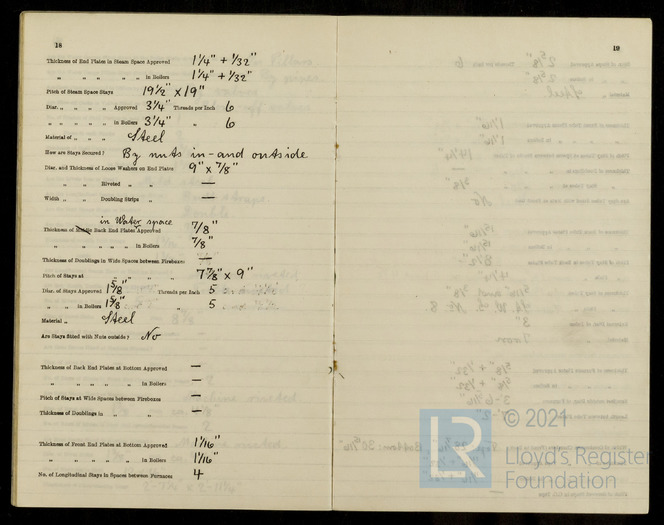 18
Thickness of End Plates in Steam Space Approved 1 1/4" + 1/32"
„ „ „ „ „ in Boilers 1 1/4" + 1/32"
Pitch of Steam Space Stays 19 1/2" x 19"
Diar. „ „ „ „ Approved 3 1/4" Threads per Inch 6
„ „ „ „ in Boilers 3 1/4" „ 6
Material of „ „ „ Steel
How are Stays Secured? By nuts in- and outside
Diar. and Thickness of Loose Washers on End Plates 9" x 7/8"
„ „ Riveted „ „ —
Width „ „ Doubling Strips „ —
in Water space
Thickness of Middle Back End Plates Approved 7/8"
„ „ „ „ „ in Boilers 7/8"
Thickness of Doublings in Wide Spaces between Fireboxes —
Pitch of Stays at „ „ „ „ 7 7/8" x 9"
Diar. of Stays Approved 1 5/8" Threads per Inch 5
„ „ in Boilers 1 5/8" „ 5
Material „ Steel
Are Stays fitted with Nuts outside? No
Thickness of Back End Plates at Bottom Approved —
„ „ „ „ „ in Boilers —
Pitch of Stays at Wide Spaces between Fireboxes —
Thickness of Doublings in „ „ —
Thickness of Front End Plates at Bottom Approved 1 1/16"
„ „ „ „ „ in Boilers 1 1/16"
No. of Longitudinal Stays in Spaces between Furnaces 4
19
© 2021
LR
Lloyd's Register
Foundation